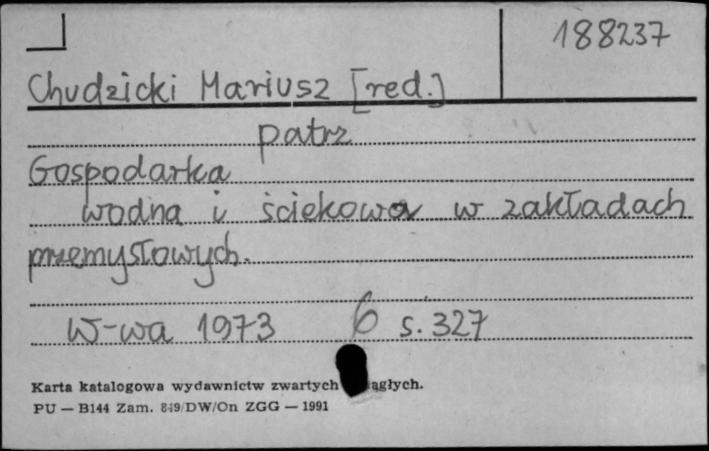 188237
Chudzicki Mariusz [red.]
patrz
Gospodarka
wodna i ściekowa w zakładach
przemysłowych.
W-wa 1973 6 s. 327
Karta katalogowa wydawnictw zwartych
PU — B144 Zam. 849/DW/On ZGG — 1991